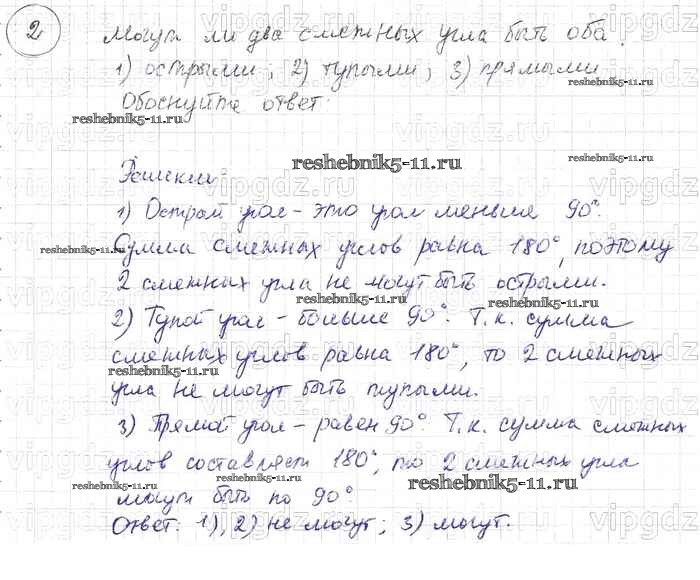 2 Могут ли два смежных угла быть оба:
1) острыми; 2) тупыми; 3) прямыми
Обоснуйте ответ.
reshebnik5-11.ru
reshebnik5-11.ru
Решение:
1) Острый угол - это угол меньше 90°.
reshebnik5-11.ru
Сумма смежных углов равна 180°, поэтому
2 смежных угла не могут быть острыми.
reshebnik5-11.ru
reshebnik5-11.ru
2) Тупой угол - больше 90°. Т.к. сумма
смежных углов равна 180°, то 2 смежных
reshebnik5-11.ru
угла не могут быть тупыми.
3) Прямой угол - равен 90°. Т.к. сумма смежных
углов составляет 180°, то 2 смежных угла
reshebnik5-11.ru
reshebnik5-11.ru
reshebnik5-11.ru
могут быть по 90°
Ответ: 1), 2) не могут; 3) могут.
vipgdz.ru